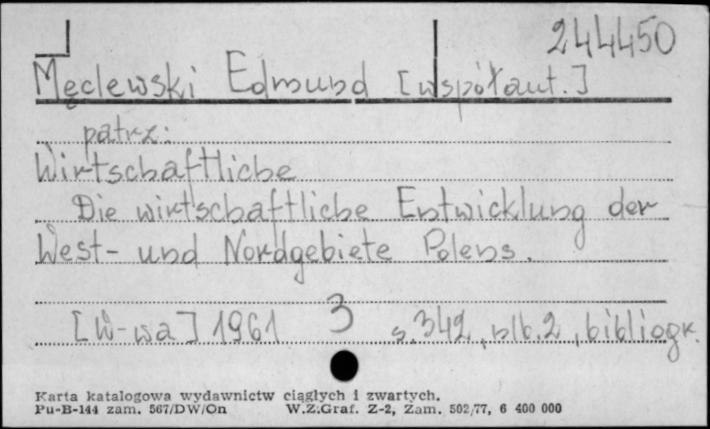 244450
Męclewski Edmund [współaut.]
patrz:
Wirtschaftliche
Die wirtschaftliche Entwicklung der
West- und Nordgebiete Polens.
[W-wa] 1961 3 s. 342, nlb. 2, bibliogr.
Karta katalogowa wydawnictw ciągłych i zwartych.
Pu-B-144 zam. 567/DW/On W.Z.Graf. Z-2, Zam. 502/77, 6 400 000